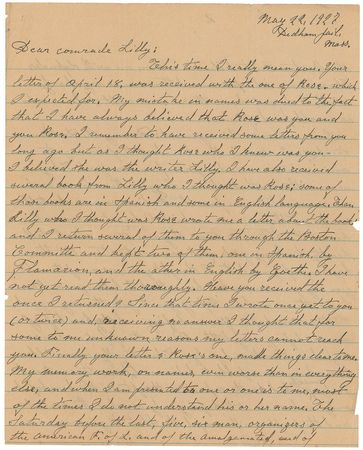 May 22, 1927
Dedham jail,
Mass.
Dear comrade Lilly:
This time I really mean you. Your
letter of April 18, was received with the one of Rose, which
I expected for. My mistake in names was dued to the fact
that I have always believed that Rose was you and
you Rose, I remember to have received some letters from you
long ago but as I thought Rose who I knew was you-
I believed she was the writer Lilly. I have also received
several book from Lilly who I thought was Rose; some of
them books are in Spanish and some in English language. Then
Lilly who I thought was Rose wrote me a letter about the books
and I return several of them to you through the Boston
Committe and kept two of them, one in Spanish, by
Flamarion, and the other in English by Goethe. I have
not yet read them thoroughly. Have you received the
once I returned? Since that times I wrote once yet to you
(or twice) and, receiving no answer I thought that for
some to me unknown reasons my letters connot reach
you. Finally your letter & Rose's one, made things clear to me.
My memory work, on names, even worse than in everything
else, and when I am presented to one or one is to me, most
of the times I do not understand his or her name. The
Saturday before the last, five, six man, organizers of
the American F. of L. and of the Amalgamated, and of